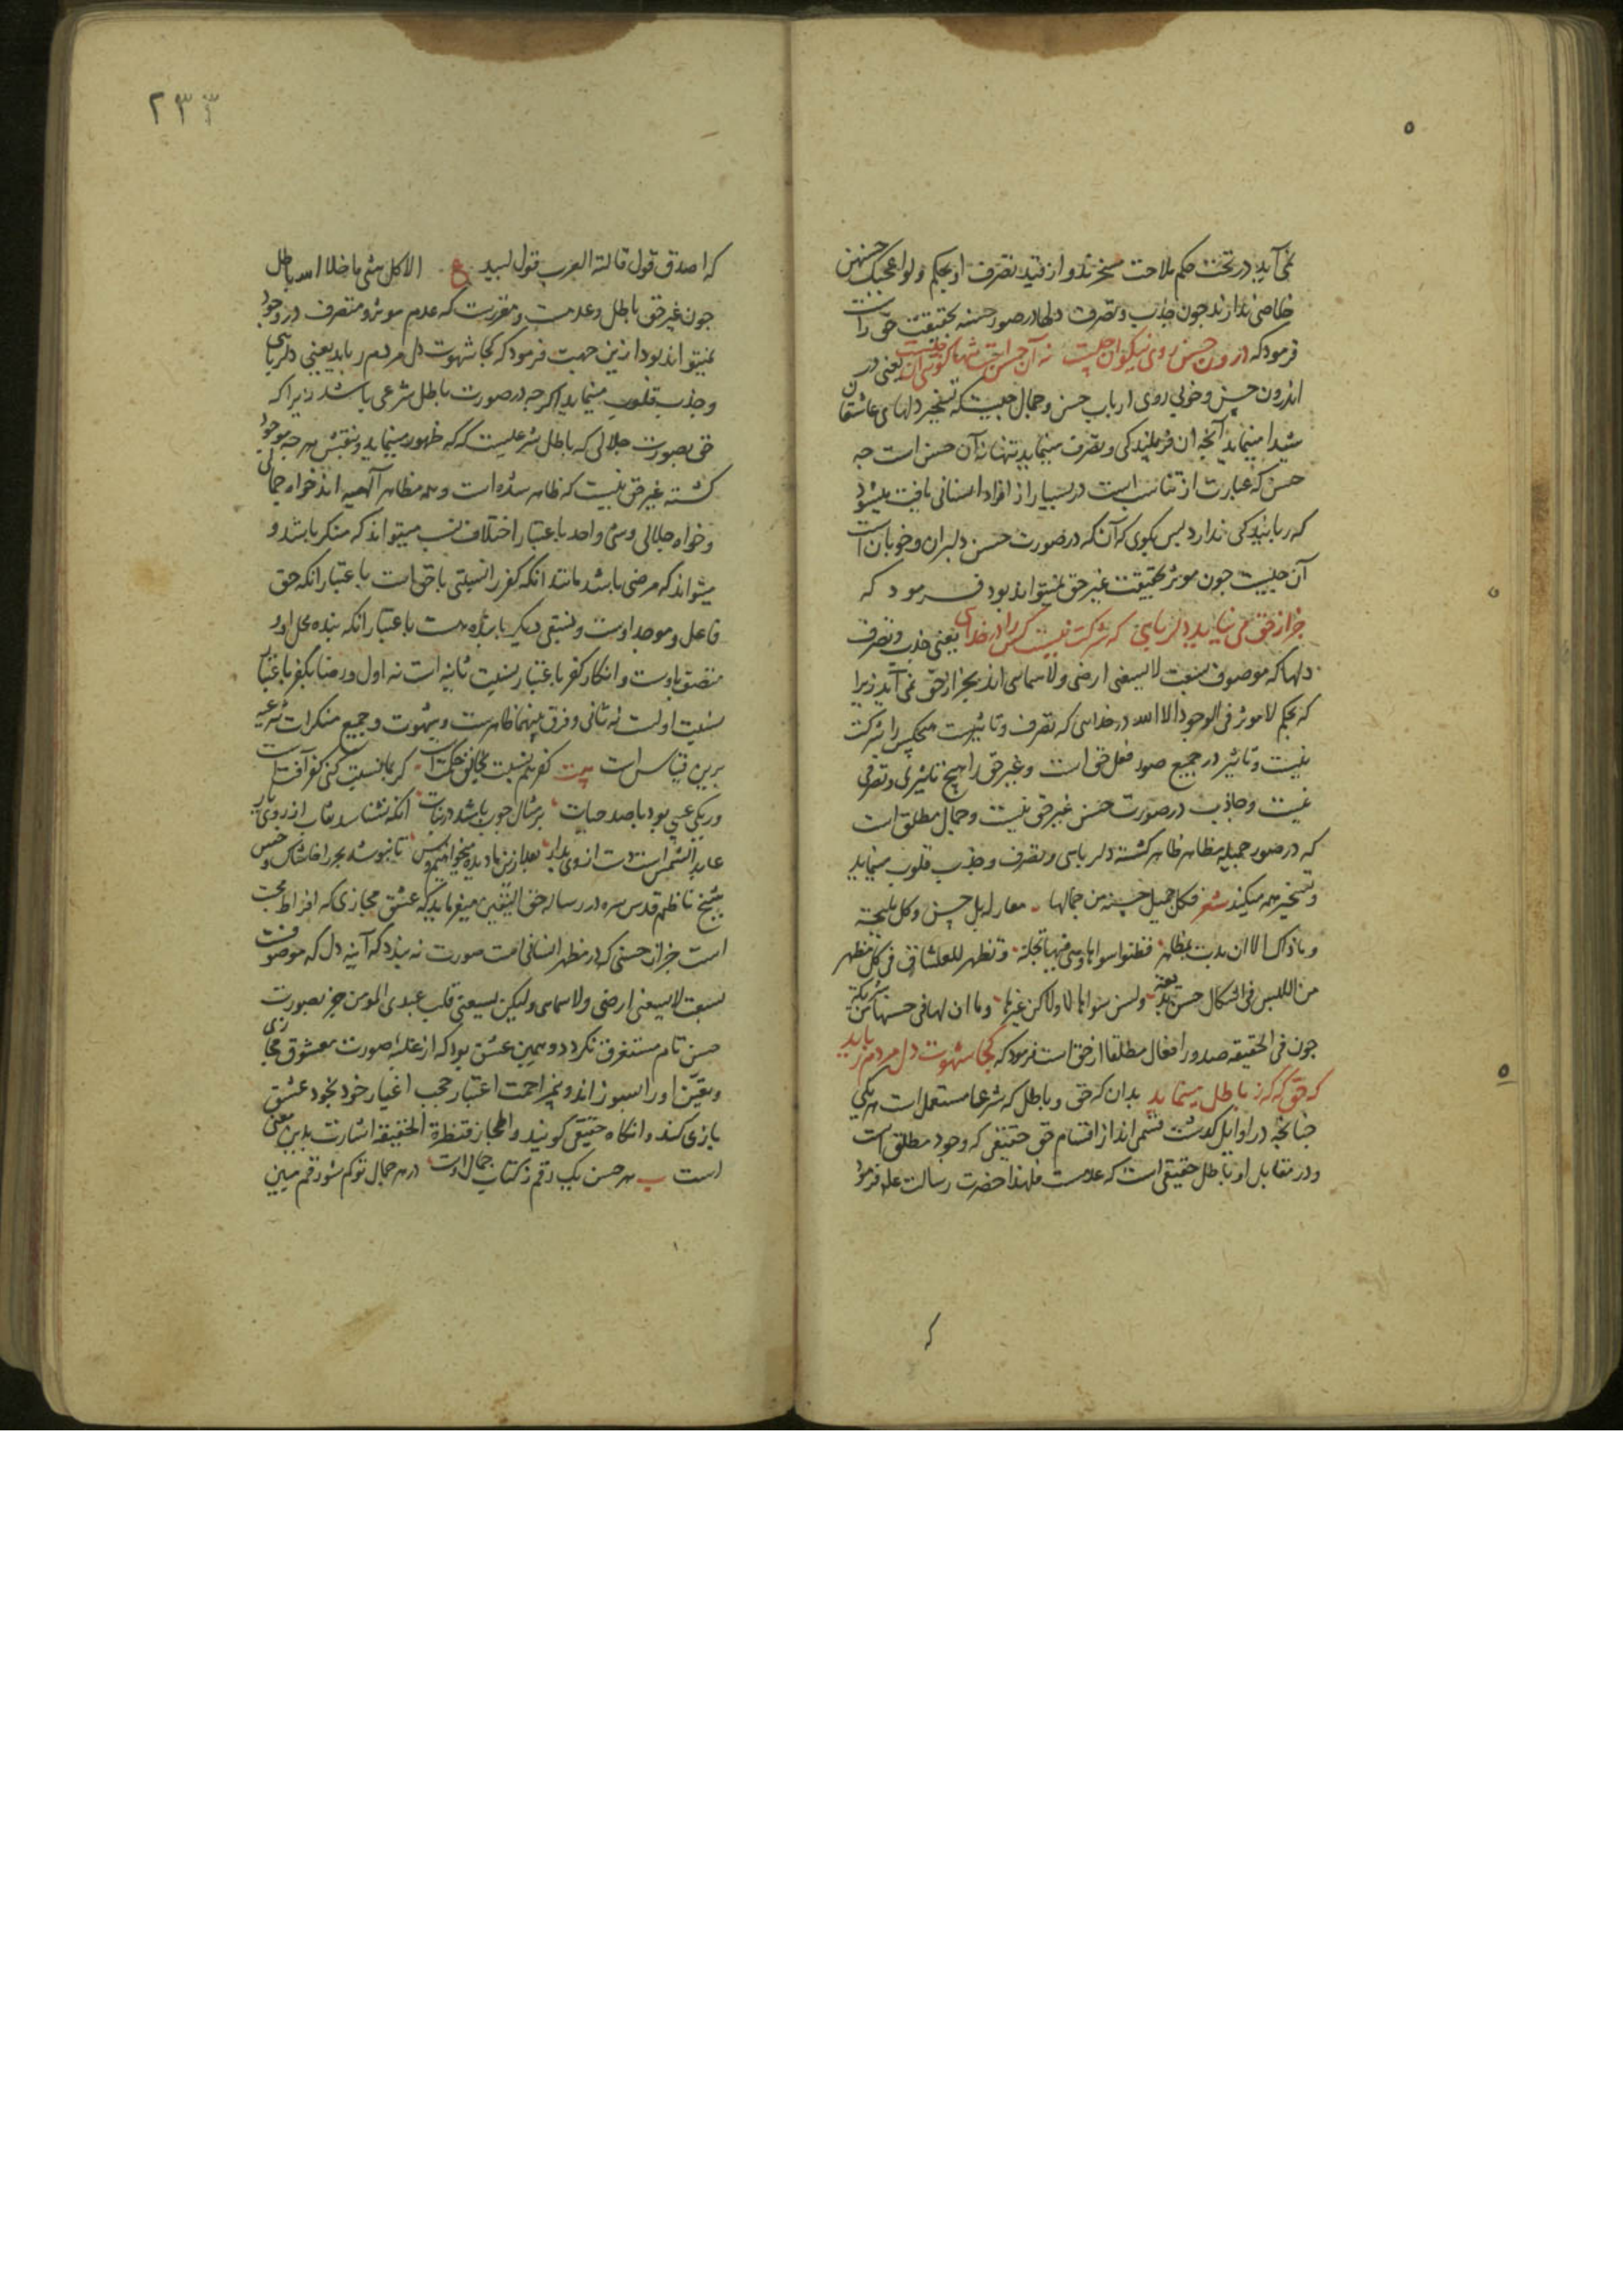 نمی آید در تحت حکم ملاحت مسخرند و از قید تصرف او بحکم ولو اعجبک حسنهن
خلاصی ندارند چون جذب و تصرف دلها در صور حسنه بحقیقت حق راست
فرمود که درون حسن روی نیکوان چیست نه آن حسن است تنها گوی آن چیست یعنی در
اندرون حسن و خوبی روی ارباب حسن و جمال چیست که تسخیر دلهای عاشقان
شیدا مینماید آنچه آن فریبندگی و تصرف مینماید تنها نه آن حسن است چه
حسن که عبارت از تناسب است در بسیار از افراد انسانی یافت میشود
که ربایندگی ندارد پس بگوی که آن که در صورت حسن دلبران و خوبان است
آن چیست چون موثر بحقیقت غیر حق نمیتواند بود فرمود که
جز از حق می نیاید دلربایی که شرکت نیست کس را در خدایی یعنی جذب و تصرف
دلها که موصوف بنعت لا یسعنی ارضی و لا سمایی اند بجز از حق نمی آید زیرا
که بحکم لا موثر فی الوجود الا الله در خدایی که تصرف و تاثیرست هیچکس را شرکت
نیست و تاثیر در جمیع صور فعل حق است و غیر حق را هیچ تاثیری و تصرفی
نیست و جاذب در صورت حسن غیر حق نیست و جمال مطلق است
که در صور جمیله مظاهر ظاهر گشته دلربایی و تصرف و جذب قلوب مینماید
و تسخیر همه میکند شعر فکل جمیل حسنه من جمالها معار له بل حسن و کل ملیحة
و ما ذاک الا ان بدت بمظاهر فظنوا سواها و هی فیها تجلت و تظهر للعشاق فی کل مظهر
من اللبس فی اشکال حسن بدیعة و لسن سواها لا و لا کن غیرها و ما ان لها فی حسنها من شریکة
چون فی الحقیقه صدور افعال مطلقا از حق است فرمود که کجا شهوت دل مردم رباید
که حق گه گه ز باطل مینماید بدان که حق و باطل که شرعا مستعمل است هر یکی
چنانچه در اوایل گذشت قسمی اند از اقسام حق حقیقی که وجود مطلق است
و در مقابل او باطل حقیقی است که عدمست فلهذا حضرت رسالت علم فرمود
که
۲۳۳
که اصدق قول قالته العرب قول لبید ع الا کل شی ما خلا الله باطل
چون غیر حق باطل و عدمست و مقررست که عدم موثر و متصرف در وجود
نمیتواند بود ازین جهت فرمود که کجا شهوت دل مردم رباید یعنی دلربایی
و جذب قلوب مینماید اگرچه در صورت باطل شرعی باشد زیرا که
حق بصورت جلالی که باطل شرعیست گه گه ظهور مینماید و بنقش هر چه موجود
گشته غیر حق نیست که ظاهر شده است و همه مظاهر الهیه اند خواه جمالی
و خواه جلالی و شی واحد باعتبار اختلاف نسب میتواند که منکر باشد و
میتواند که مرضی باشد مانند آنکه کفر را نسبتی با حق است باعتبار آنکه حق
فاعل و موجد اوست و نسبتی دیگر با بنده هست باعتبار آنکه بنده محل او و
متصف باوست و انکار کفر باعتبار نسبت ثانیه است نه اول و رضا بکفر باعتبار
نسبت اولست نه ثانی و فرق بینهما ظاهرست و شهوت و جمیع منکرات شرعیه
برین قیاس است بیت کفر هم نسبت بخالق حکمت است گر بما نسبت کنی کفر آفت است
ور یکی عیبی بود با صد حیات بر مثال چوب باشد در نبات آنکه نشناسد نقاب از روی یار
عابد الشمس است دست از وی بدار بعد ازین ما دیده میخواهیم و بس تا نپوشد بحر را خاشاک و خس
شیخ ناظم قدس سره در رساله حق الیقین میفرماید که عشق مجازی که افراط محبت
است جز از حسنی که در مظهر انسانی است صورت نه بندد که آینه دل که موصوفست
بسعت لا یسعنی ارضی و لا سمایی و لیکن یسعنی قلب عبدی المومن جز بصورت
حسن تام مستغرق نگردد و همین عشق بود که از غلبه صورت معشوق مجازی
و تعین او را بسوزاند و بی مزاحمت اعتبار حجب اغیار خود بخود عشق
بازی کند و آنگاه حقیقی گویند و المجاز قنطرة الحقیقه اشارت بدین معنی
است ب هر حسن یک رقم ز کتاب جمال اوست در هر جمال تو کم شو رقم مبین